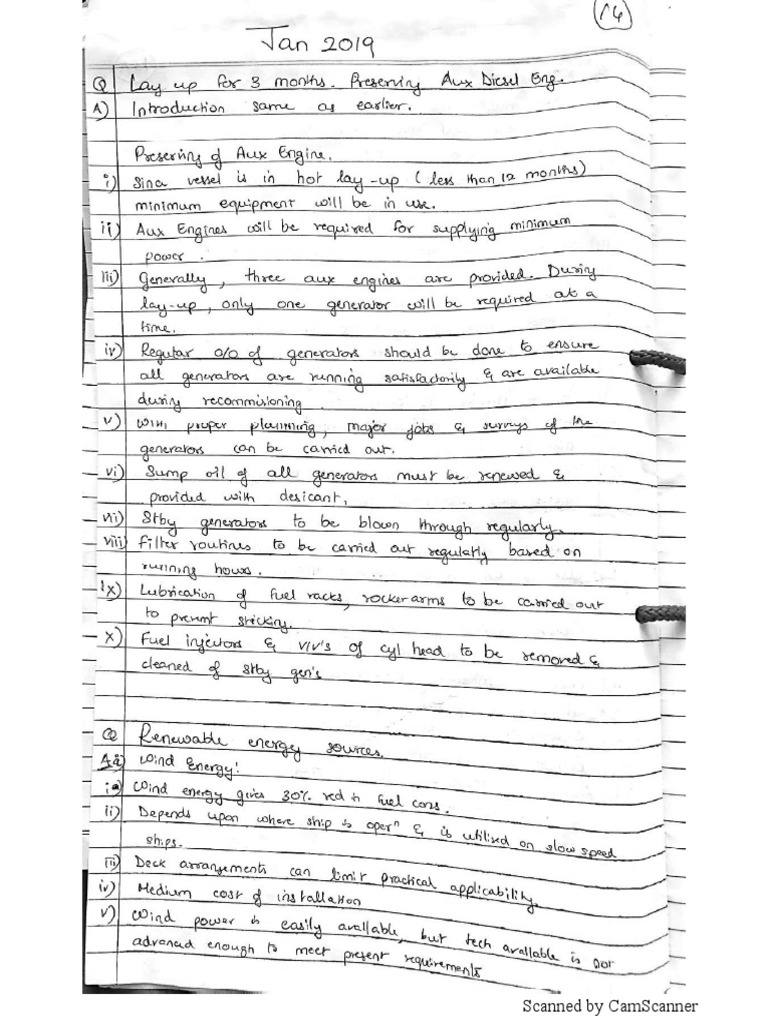 14
Jan 2019
Q Lay up for 3 months. Preserving Aux Diesel Eng.
A) Introduction same as earlier.
Preserving of Aux Engine.
i) Since vessel is in hot lay-up (less than 12 months)
minimum equipment will be in use.
ii) Aux Engines will be required for supplying minimum
power.
iii) Generally, three aux engines are provided. During
lay-up, only one generator will be required at a
time.
iv) Regular o/o of generators should be done to ensure
all generators are running satisfactorily & are available
during recommisioning.
v) With proper planning, major jobs & surveys of the
generators can be carried out.
vi) Sump oil of all generators must be renewed &
provided with desicant.
vii) Stby generators to be blown through regularly.
viii) Filter routines to be carried out regularly based on
running hours.
ix) Lubrication of fuel racks, rocker arms to be carried out
to prevent sticking.
x) Fuel injectors & v/v's of cyl head to be removed &
cleaned of stby gen's
Q Renewable energy sources.
A a) Wind Energy:
i) Wind energy gives 30% red in fuel cons.
ii) Depends upon where ship is operⁿ & is utilised on slow speed
ships.
iii) Deck arrangements can limit practical applicability.
iv) Medium cost of installation
v) Wind power is easily available, but tech available is not
advanced enough to meet present requirements
Scanned by CamScanner